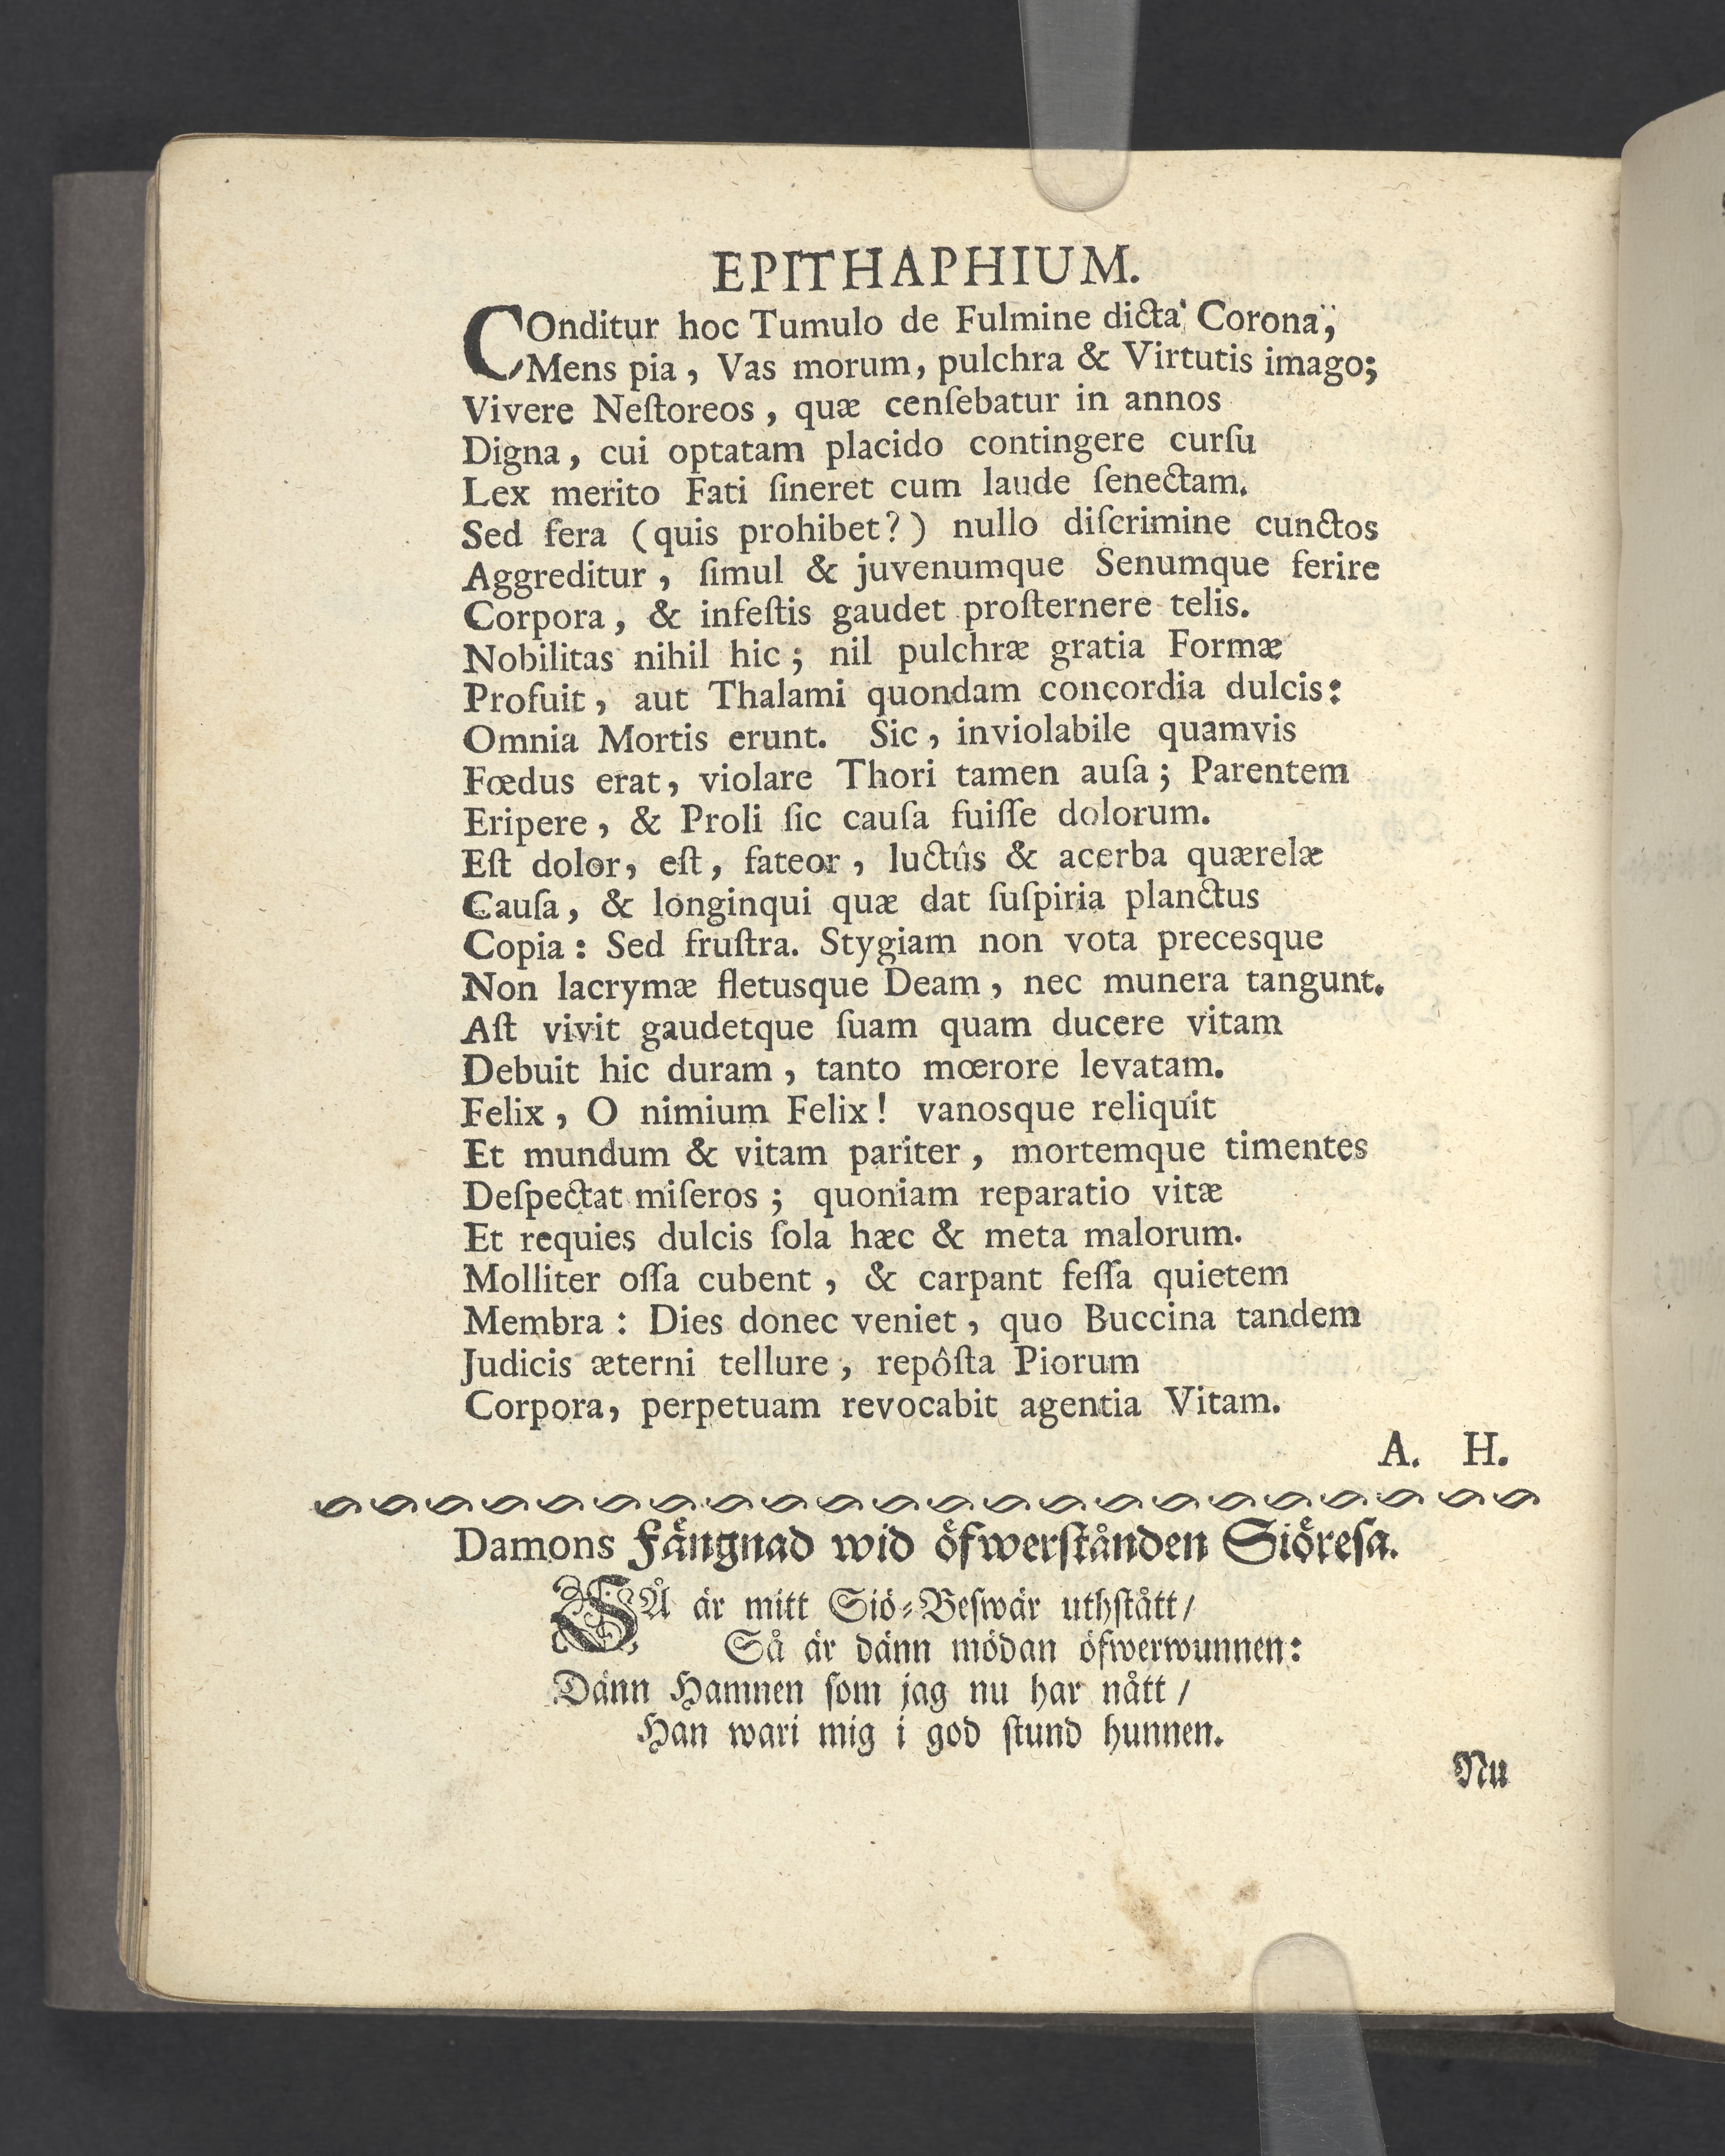 EPITHAPHIUM.
COnditur hoc Tumulo de Fulmine dicta Corona,
Mens pia, Vas morum, pulchra & Virtutis imago;
Vivere Neſtoreos, quæ cenſebatur in annos
Digna, cui optatam placido contingere curſu
Lex merito Fati ſineret cum laude ſenectam.
Sed fera (quis prohibet?) nullo diſcrimine cunctos
Aggreditur, ſimul & juvenumque Senumque ferire
Corpora, & infeſtis gaudet proſternere telis.
Nobilitas nihil hic; nil pulchræ gratia Formæ
Profuit, aut Thalami quondam concordia dulcis:
Omnia Mortis erunt. Sic, inviolabile quamvis
Fœdus erat, violare Thori tamen auſa; Parentem
Eripere, & Proli ſic cauſa fuiſſe dolorum.
Eſt dolor, eſt, fateor, luctûs & acerba quærelæ
Cauſa, & longinqui quæ dat ſuſpiria planctus
Copia: Sed fruſtra. Stygiam non vota precesque
Non lacrymæ fletusque Deam, nec munera tangunt.
Aſt vivit gaudetque ſuam quam ducere vitam
Debuit hic duram, tanto mœrore levatam.
Felix, O nimium Felix! vanosque reliquit
Et mundum & vitam pariter, mortemque timentes
Deſpectat miſeros; quoniam reparatio vitæ
Et requies dulcis ſola hæc & meta malorum.
Molliter oſſa cubent, & carpant feſſa quietem
Membra: Dies donec veniet, quo Buccina tandem
Judicis æterni tellure, repôſta Piorum
Corpora, perpetuam revocabit agentia Vitam.
A. H.
Damons Fängnad wid öfwerſtånden Siöreſa.
SÅ är mitt Siö-Beſwär uthſtått/
Så är dänn mödan öfwerwunnen:
Dänn Hamnen ſom jag nu har nått/
Han wari mig i god ſtund hunnen.
Nu